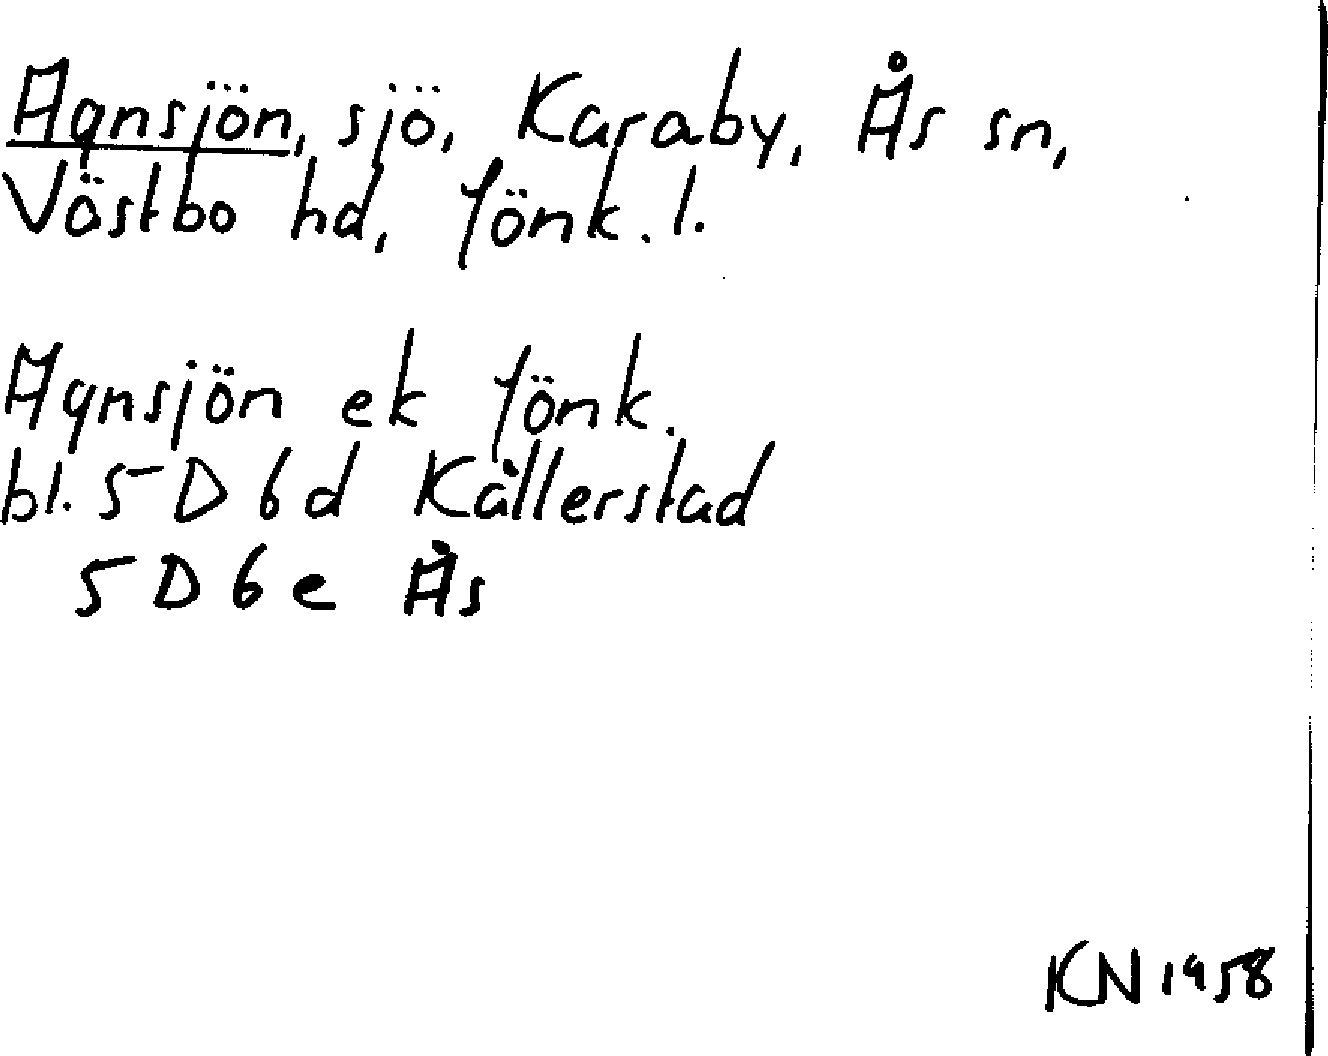 Agnsjön, sjö, Karaby, Ås sn,
Västbo hd, Jönk. l.
Agnsjön ek Jönk.
bl. 5 D 6 d Källerstad
5 D 6 e Ås
KN 1958